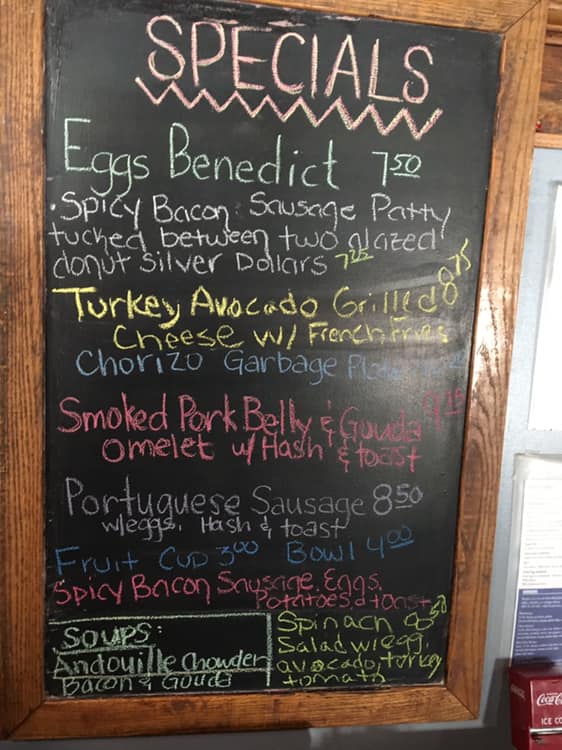 SPECIALS
Eggs Benedict 7.50
Spicy Bacon Sausage Patty
tucked between two glazed
donut Silver Dollars
Turkey Avocado Grilled 8.75
Cheese w/ French Fries
Chorizo Garbage
Smoked Pork Belly & Gouda
omelet w/Hash & toast
Portuguese Sausage 8.50
w/eggs, Hash & toast
Fruit Cup 3.00 Bowl 4.00
Spicy Bacon Sausage, Eggs,
Potatoes & toast
Soups:
Andouille Chowder
Bacon & Gouda
Spinach 8.50
Salad w/egg,
avocado, turkey
tomato
Coca-Cola
ICE CO